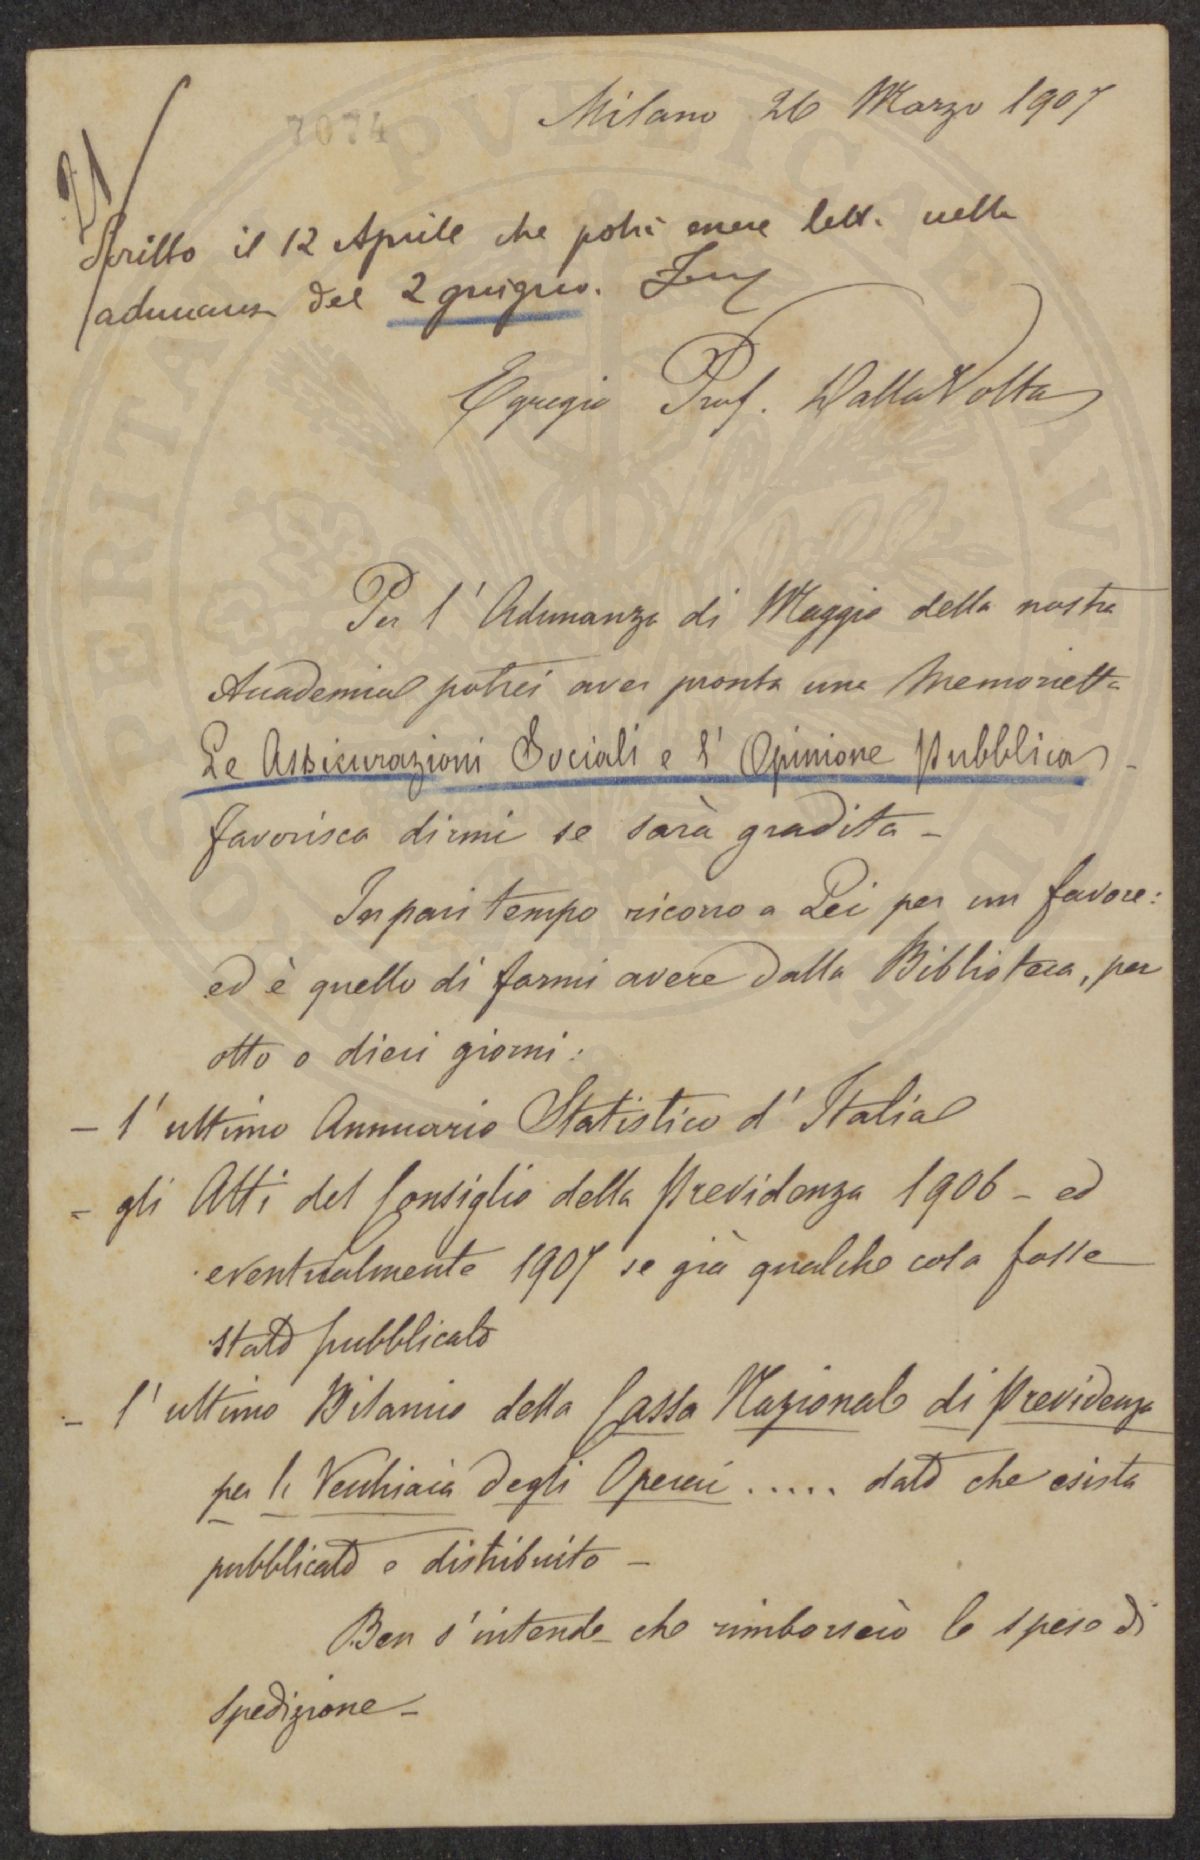 Milano 26 Marzo 1907
7074
21
Scritto il 12 Aprile che potrà essere lett. nella
adunanza del 2 giugno.
Egregio Prof. Dalla Volta
Per l'Adunanza di Maggio della nostra
Accademia potrei aver pronta una Memorietta
Le Assicurazioni Sociali e l'Opinione Pubblica -
favorisca dirmi se sarà gradita -
In pari tempo ricorro a Lei per un favore:
ed è quello di farmi avere dalla Biblioteca, per
otto o dieci giorni:
- l'ultimo Annuario Statistico d'Italia
- gli Atti del Consiglio della Previdenza 1906 - ed
eventualmente 1907 se già qualche cosa fosse
stato pubblicato
- l'ultimo Bilancio della Cassa Nazionale di Previdenza
per la Vecchiaia degli Operai ..... dato che esista
pubblicato e distribuito -
Ben s'intende che rimborserò le spese di
spedizione -